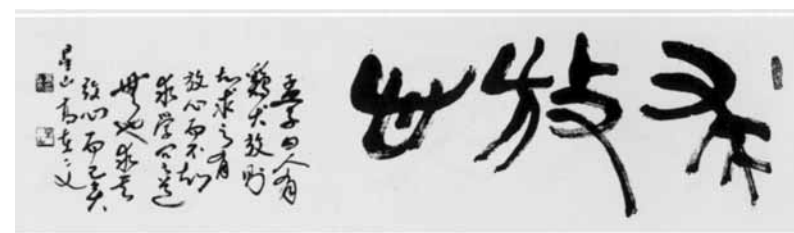 求放心
孟子曰人有
鷄犬放則
知求之有
放心而不知
求学问之道
無他求其
放心而已矣
星山